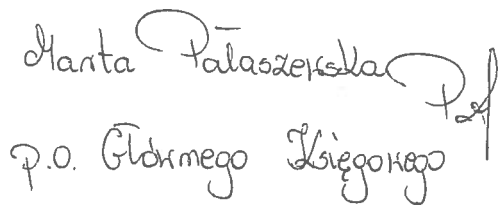 Marta Pałaszewska
p.o. Głównego Księgowego